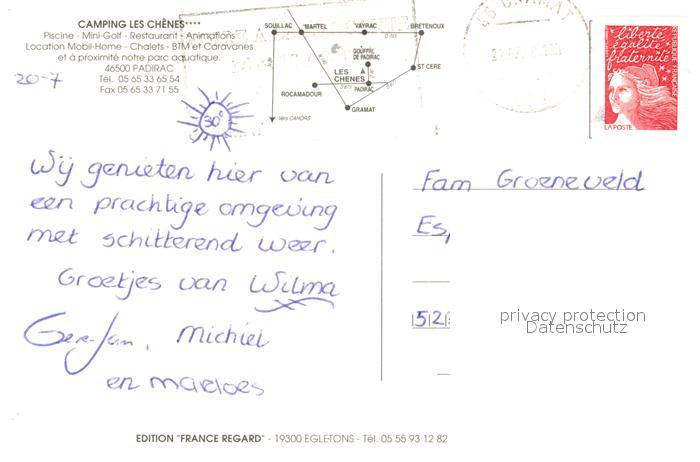 CAMPING LES CHÊNES****
Piscine - Mini-Golf - Restaurant - Animations
Location Mobil-Home - Chalets - BTM et Caravanes
et à proximité notre parc aquatique.
46500 PADIRAC
Tél. 05 65 33 65 54
Fax 05 65 33 71 55
20-7
30°
SOUILLAC
MARTEL
VAYRAC
BRETENOUX
GOUFFRE
DE PADIRAC
ST CERE
LES
CHENES
PADIRAC
ROCAMADOUR
GRAMAT
Vers CAHORS
GRAMAT
liberté
égalité
fraternité
RÉPUBLIQUE FRANÇAISE
LA POSTE
Wij genieten hier van
een prachtige omgeving
met schitterend weer.
Groetjes van Wilma
Ger-Jan, Michiel
en Marloes
Fam Groeneveld
Es
52
privacy protection
Datenschutz
EDITION "FRANCE REGARD" - 19300 EGLETONS - Tél. 05 55 93 12 82